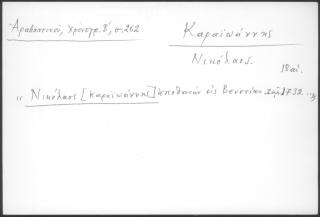 Ἀραβαντινοῦ, Χρονογρ. Β', σ. 262
Καραϊωάννης
Νικόλαος.
18 αἰ.
"Νικόλαος [Καραϊωάννης] ἀποθανών εἰς Βενετίαν 1732..."